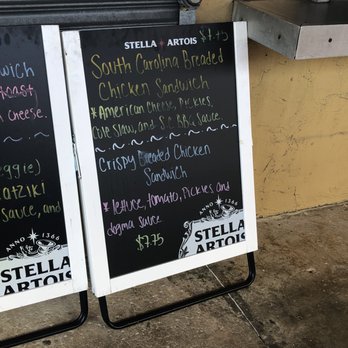 wich
Roast,
cheese.
eggie)
atziki
sauce, and
ANNO 1366
STELLA
ARTOIS
STELLA ARTOIS
South Carolina Breaded
Chicken Sandwich
*American Cheese, Pickles,
Cole Slaw, and S.C. BBQ Sauce.
Crispy Breaded Chicken
Sandwich
*lettuce, tomato, Pickles, and
dogma sauce
$7.75
ANNO 1366
STELLA
ARTOIS